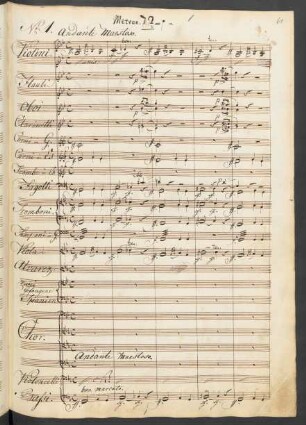 Metron. 72 = 
No. 1. Andante Maestoso.
Violini
Flauti
Oboi
Clarinetti
Corni in G.
Corni in D.
Trombe in C.
Fagotti
Tromboni
Timpani in
Viola
Alvarez
Spanien
Chor.
Andante maestoso
Violoncello
ben marcato
Bassi.